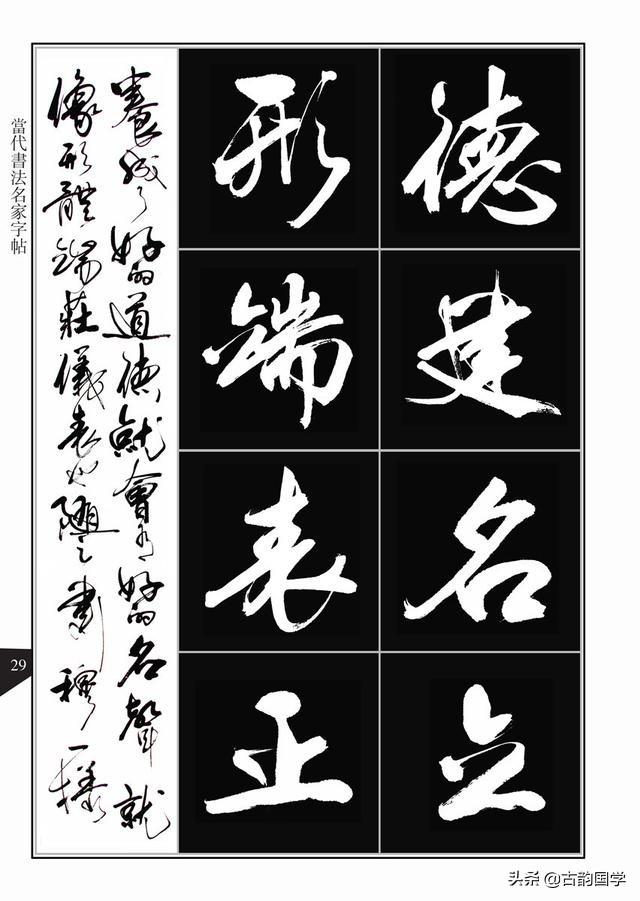 德建名立
形端表正
養成了好的道德就會有好的名聲就
像形體端莊儀表也隨之肅穆一樣
當代書法名家字帖
29
头条 @古韵国学